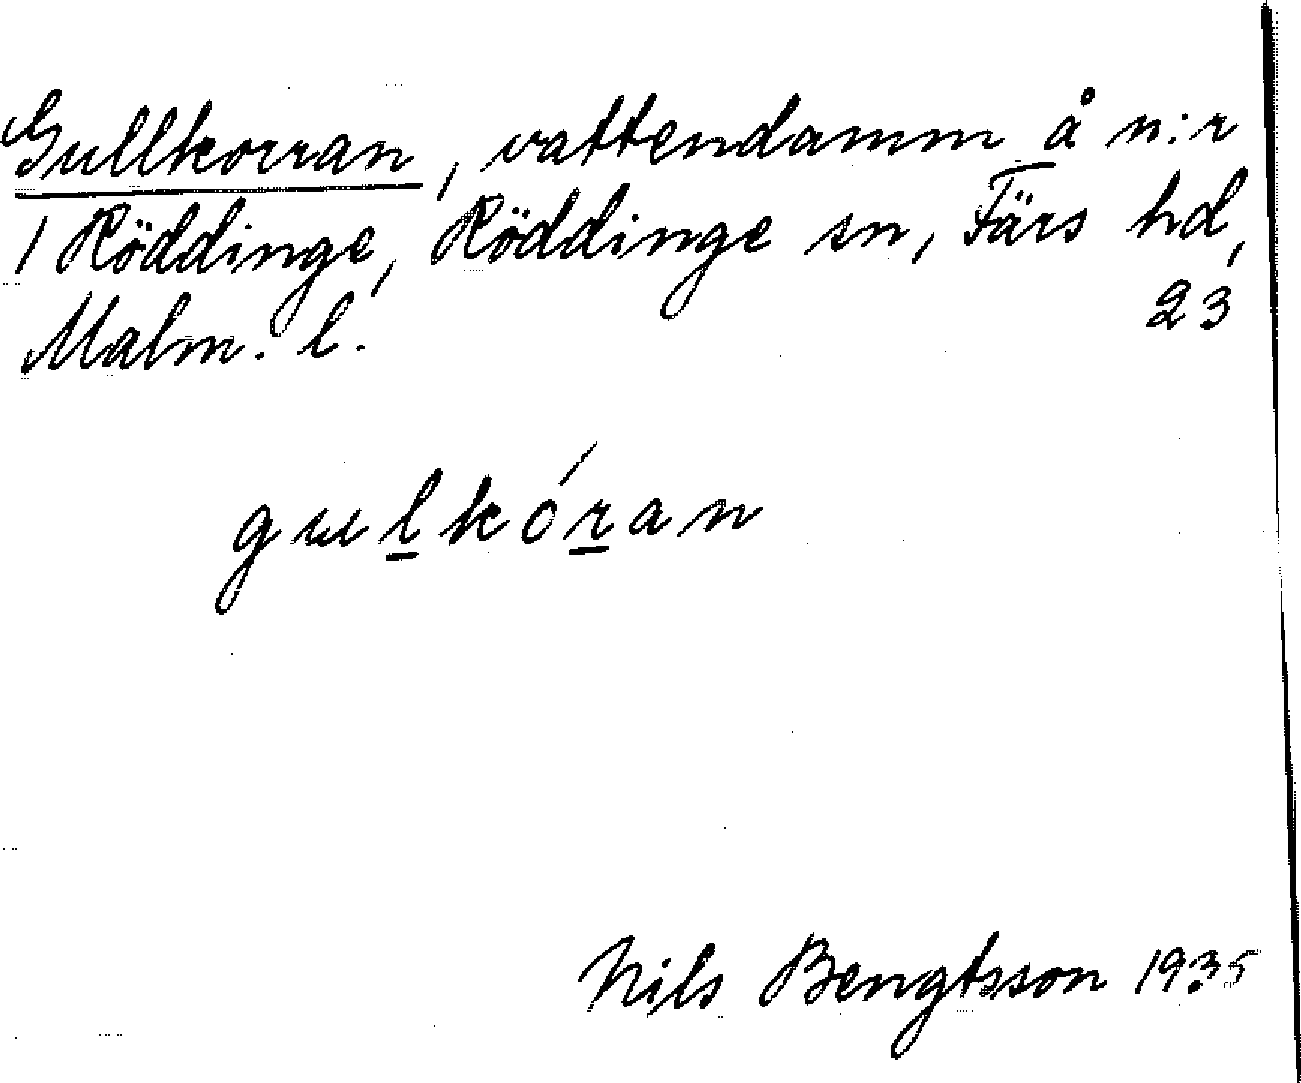 Gullkorran, vattendamm å n:r
1 Röddinge, Röddinge sn, Färs hd,
Malm. l. 23
gulkóran
Nils Bengtsson 1935